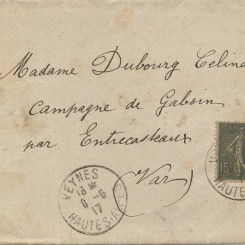 Madame Dubourg Célina
Campagne de Gaboin
par Entrecasteaux
(Var)
VEYNES
13 *
6 -6
17
HAUTES-ALPES
15